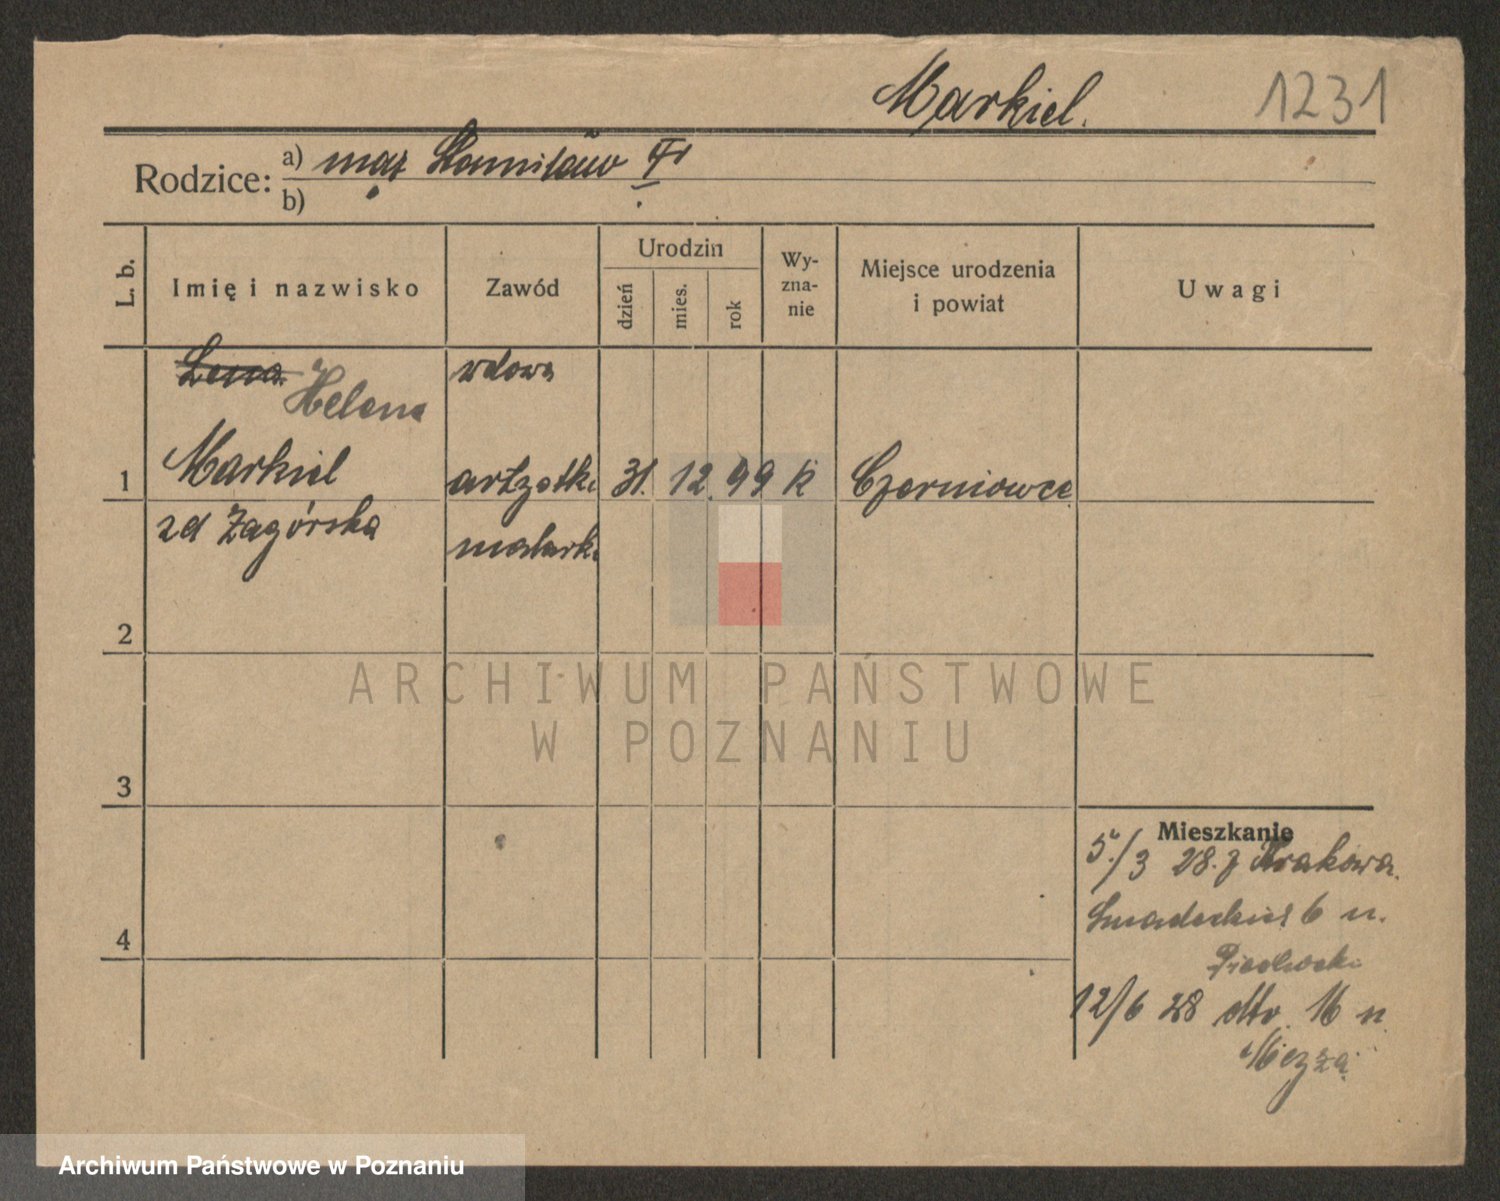 Markiel.
1231
Rodzice:
a) mąż Stanisław
b)
L. b.
Imię i nazwisko
Zawód
Urodzin
dzień
mies.
rok
Wy-
zna-
nie
Miejsce urodzenia
i powiat
Uwagi
Helena
wdowa
1 Markiel
31. 12. 99 k Czerniowce
zd Zagórska
malark.
2
3
4
Mieszkanie
5./3 28. z Krakowa.
6 u.
12/6 28 dto. 16 u
ARCHIWUM PAŃSTWOWE
W POZNANIU
Archiwum Państwowe w Poznaniu